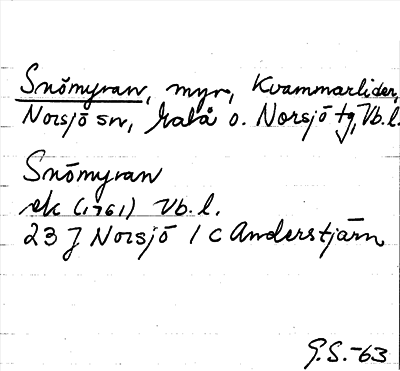 Snömyran, myr, Kvammarliden,
Norsjö sn, Malå o. Norsjö tg, Vb.l.
Snömyran
ek (1761) Vb.l.
23 J Norsjö 1 c Anderstjärn
G.S.-63